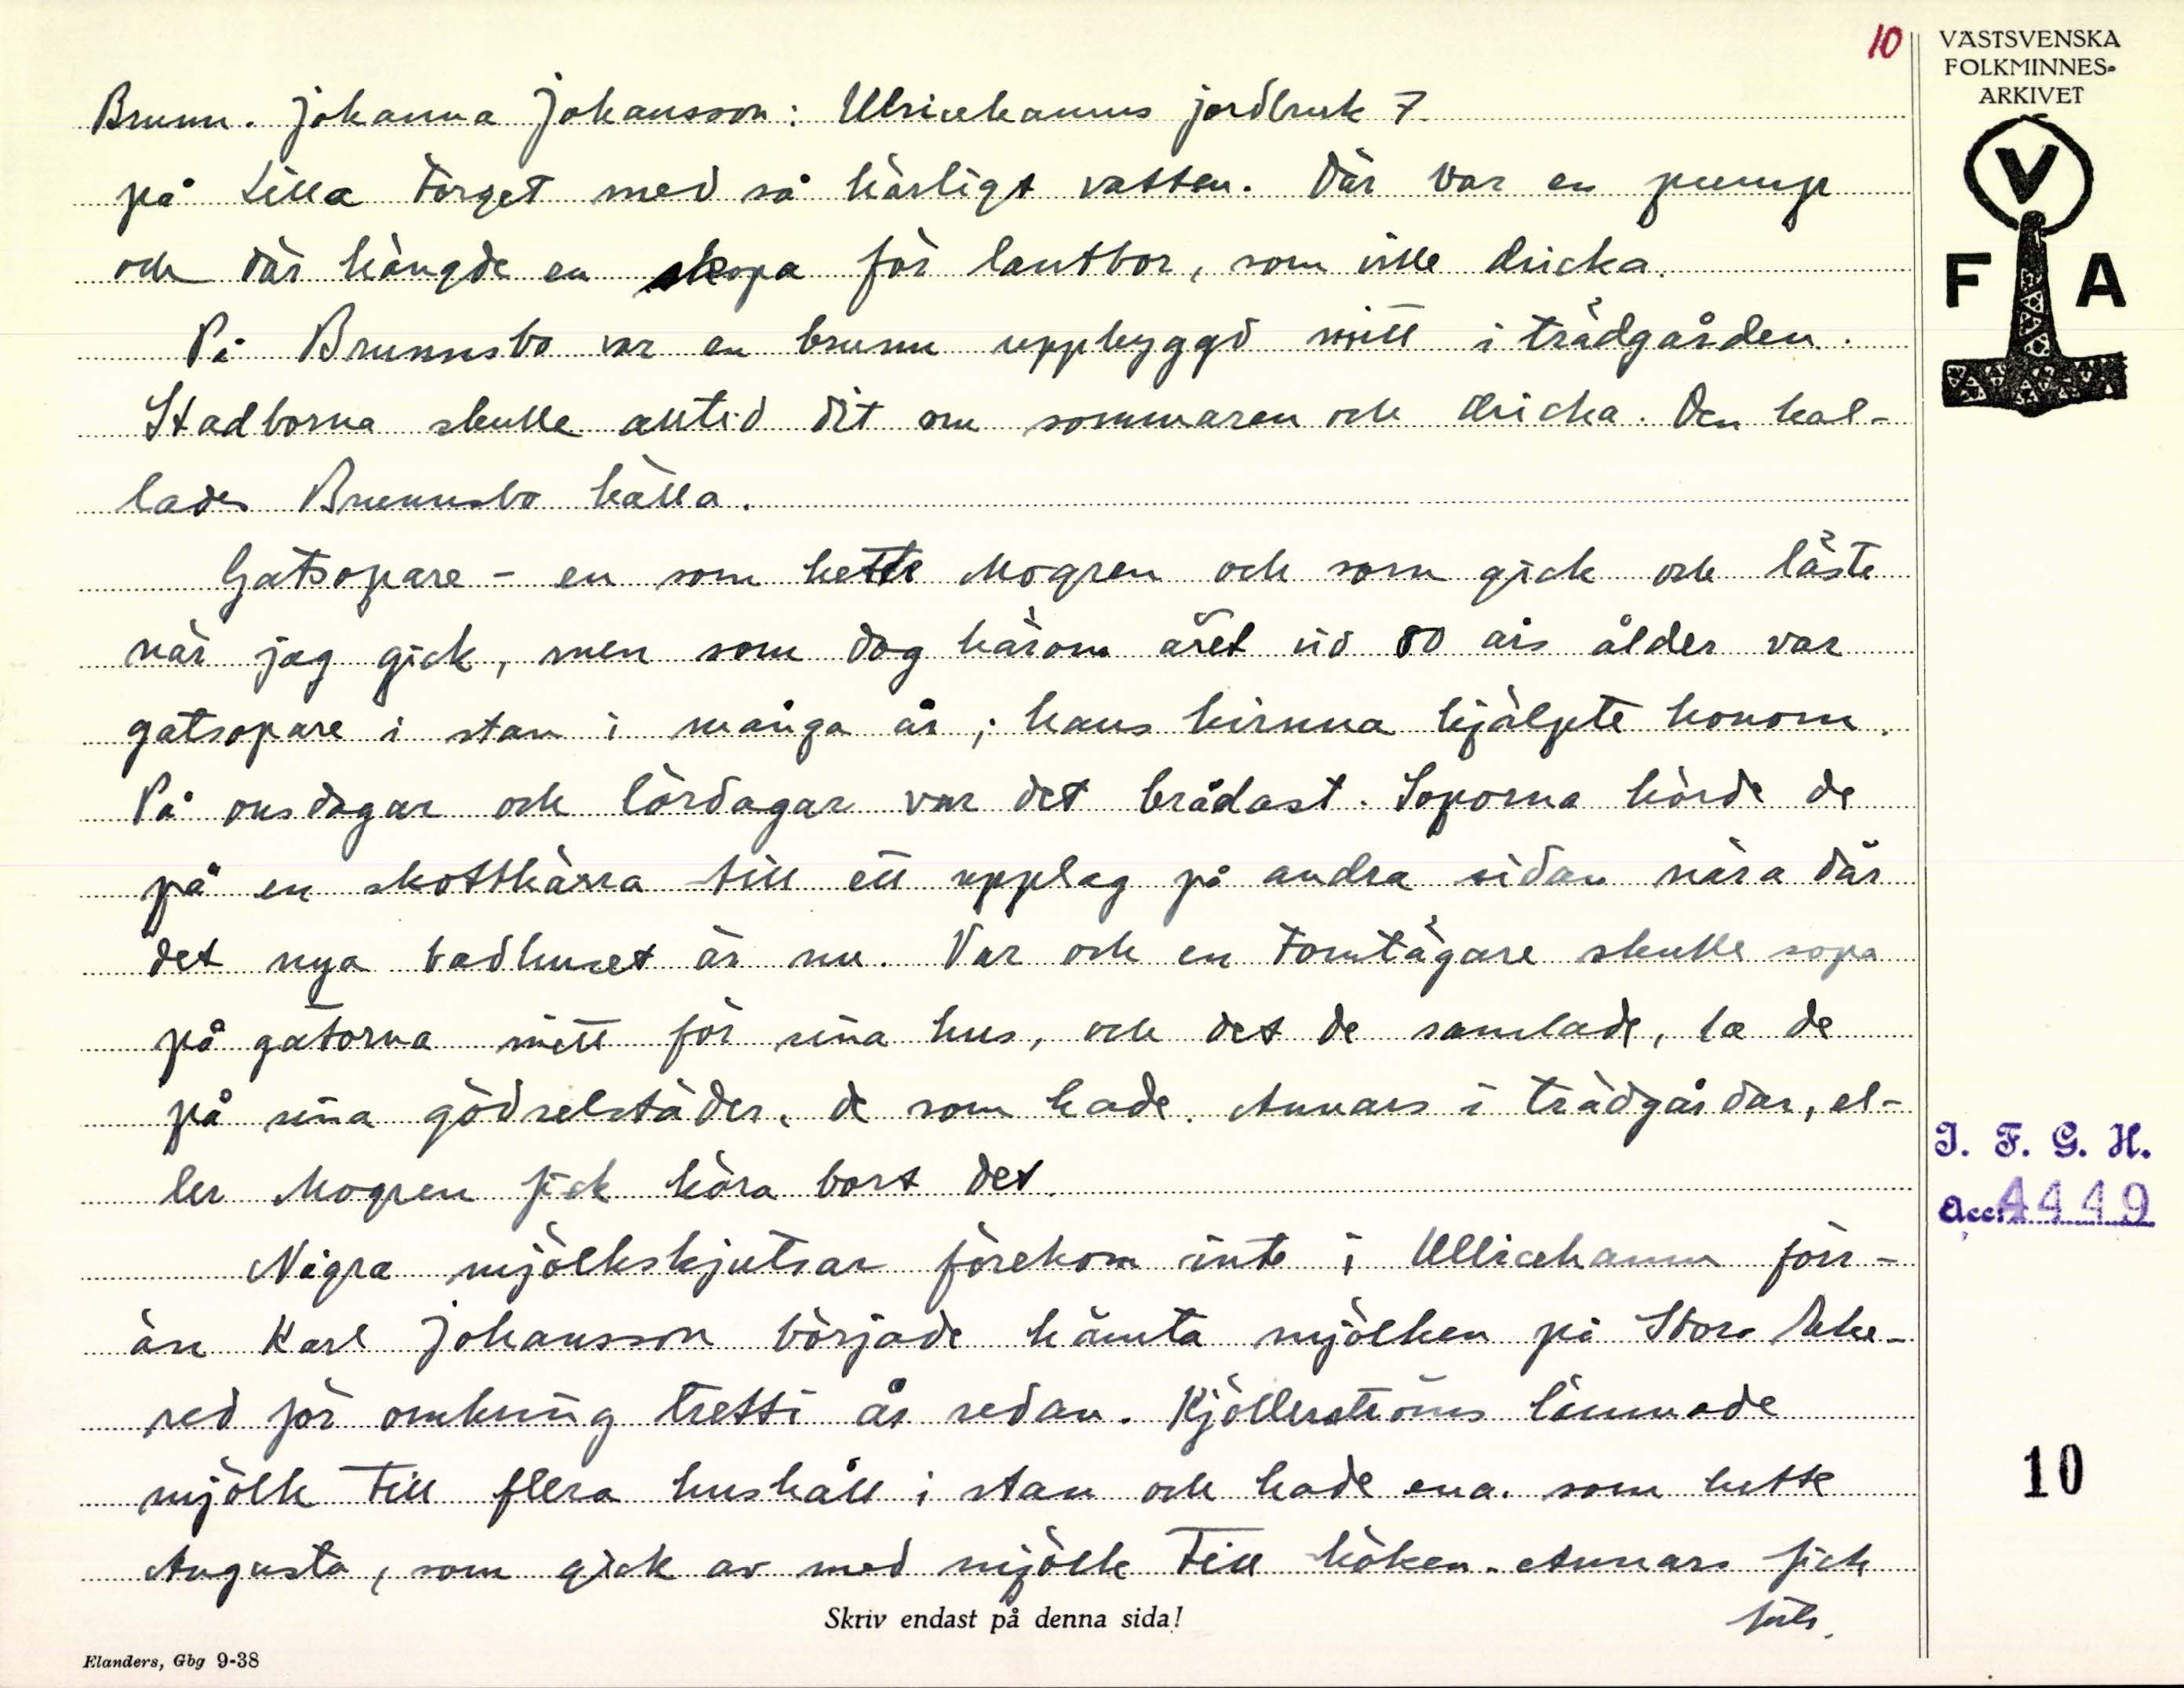 10
VÄSTSVENSKA
FOLKMINNES-
ARKIVET
V
F A
Brunn. Johanna Johansson: Ulricehamns jordbruk 7.
på Lilla Torget med så härligt vatten. Där var en pump
och där hängde en skopa för lantbor, som ville dricka.
På Brunnsbo var en brunn uppbyggd mitt i trädgården.
Stadborna skulle alltid dit om sommaren och dricka. Den kal-
lades Brunnsbo källa.
Gatsopare - en som hette Mogren och som gick och läste
när jag gick, men som dog härom året vid 80 års ålder var
gatsopare i stan i många år; hans kvinna hjälpte honom.
På onsdagar och lördagar var det brådast. Soporna körde de
på en skottkärra till ett upplag på andra sidan nära där
det nya badhuset är nu. Var och en tomtägare skulle sopa
på gatorna mitt för sina hus, och det de samlade, la de
på sina gödselstäder, de som hade. Annars i trädgårdar, el-
ler Mogren fick köra bort det.
Några mjölkskjutsar förekom inte i Ulricehamn förr-
än Karl Johansson började hämta mjölken på Stora
red för omkring tretti år sedan. Kjöllerströms lämnade
mjölk till flera hushåll i stan och hade ena. som hette
Augusta, som gick av med mjölk till köken. Annars fick
folk.
Skriv endast på denna sida!
Elanders, Gbg 9-38
I. F. G. H.
Acc. 4449
10